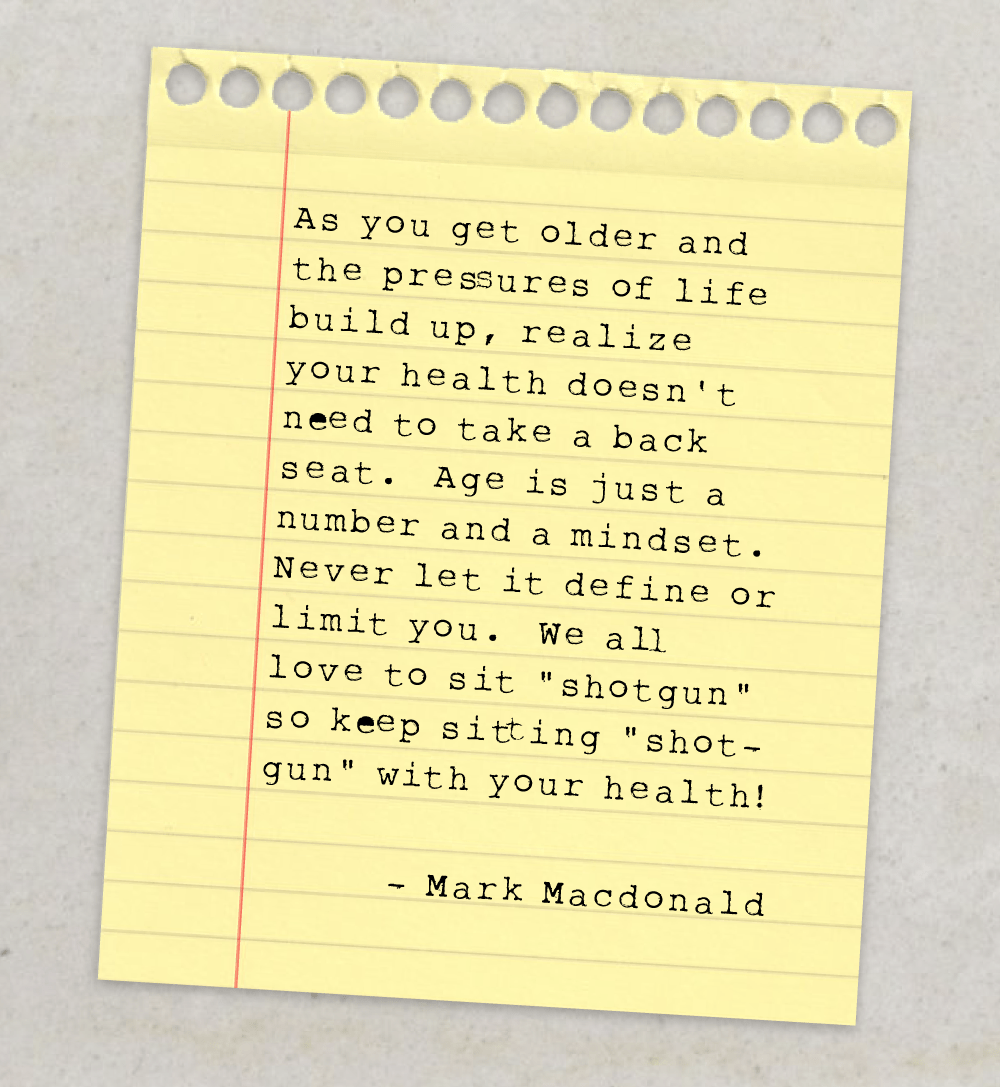 As you get older and
the pressures of life
build up, realize
your health doesn't
need to take a back
seat.  Age is just a
number and a mindset.
Never let it define or
limit you.  We all
love to sit "shotgun"
so keep sitting "shot-
gun" with your health!
- Mark Macdonald